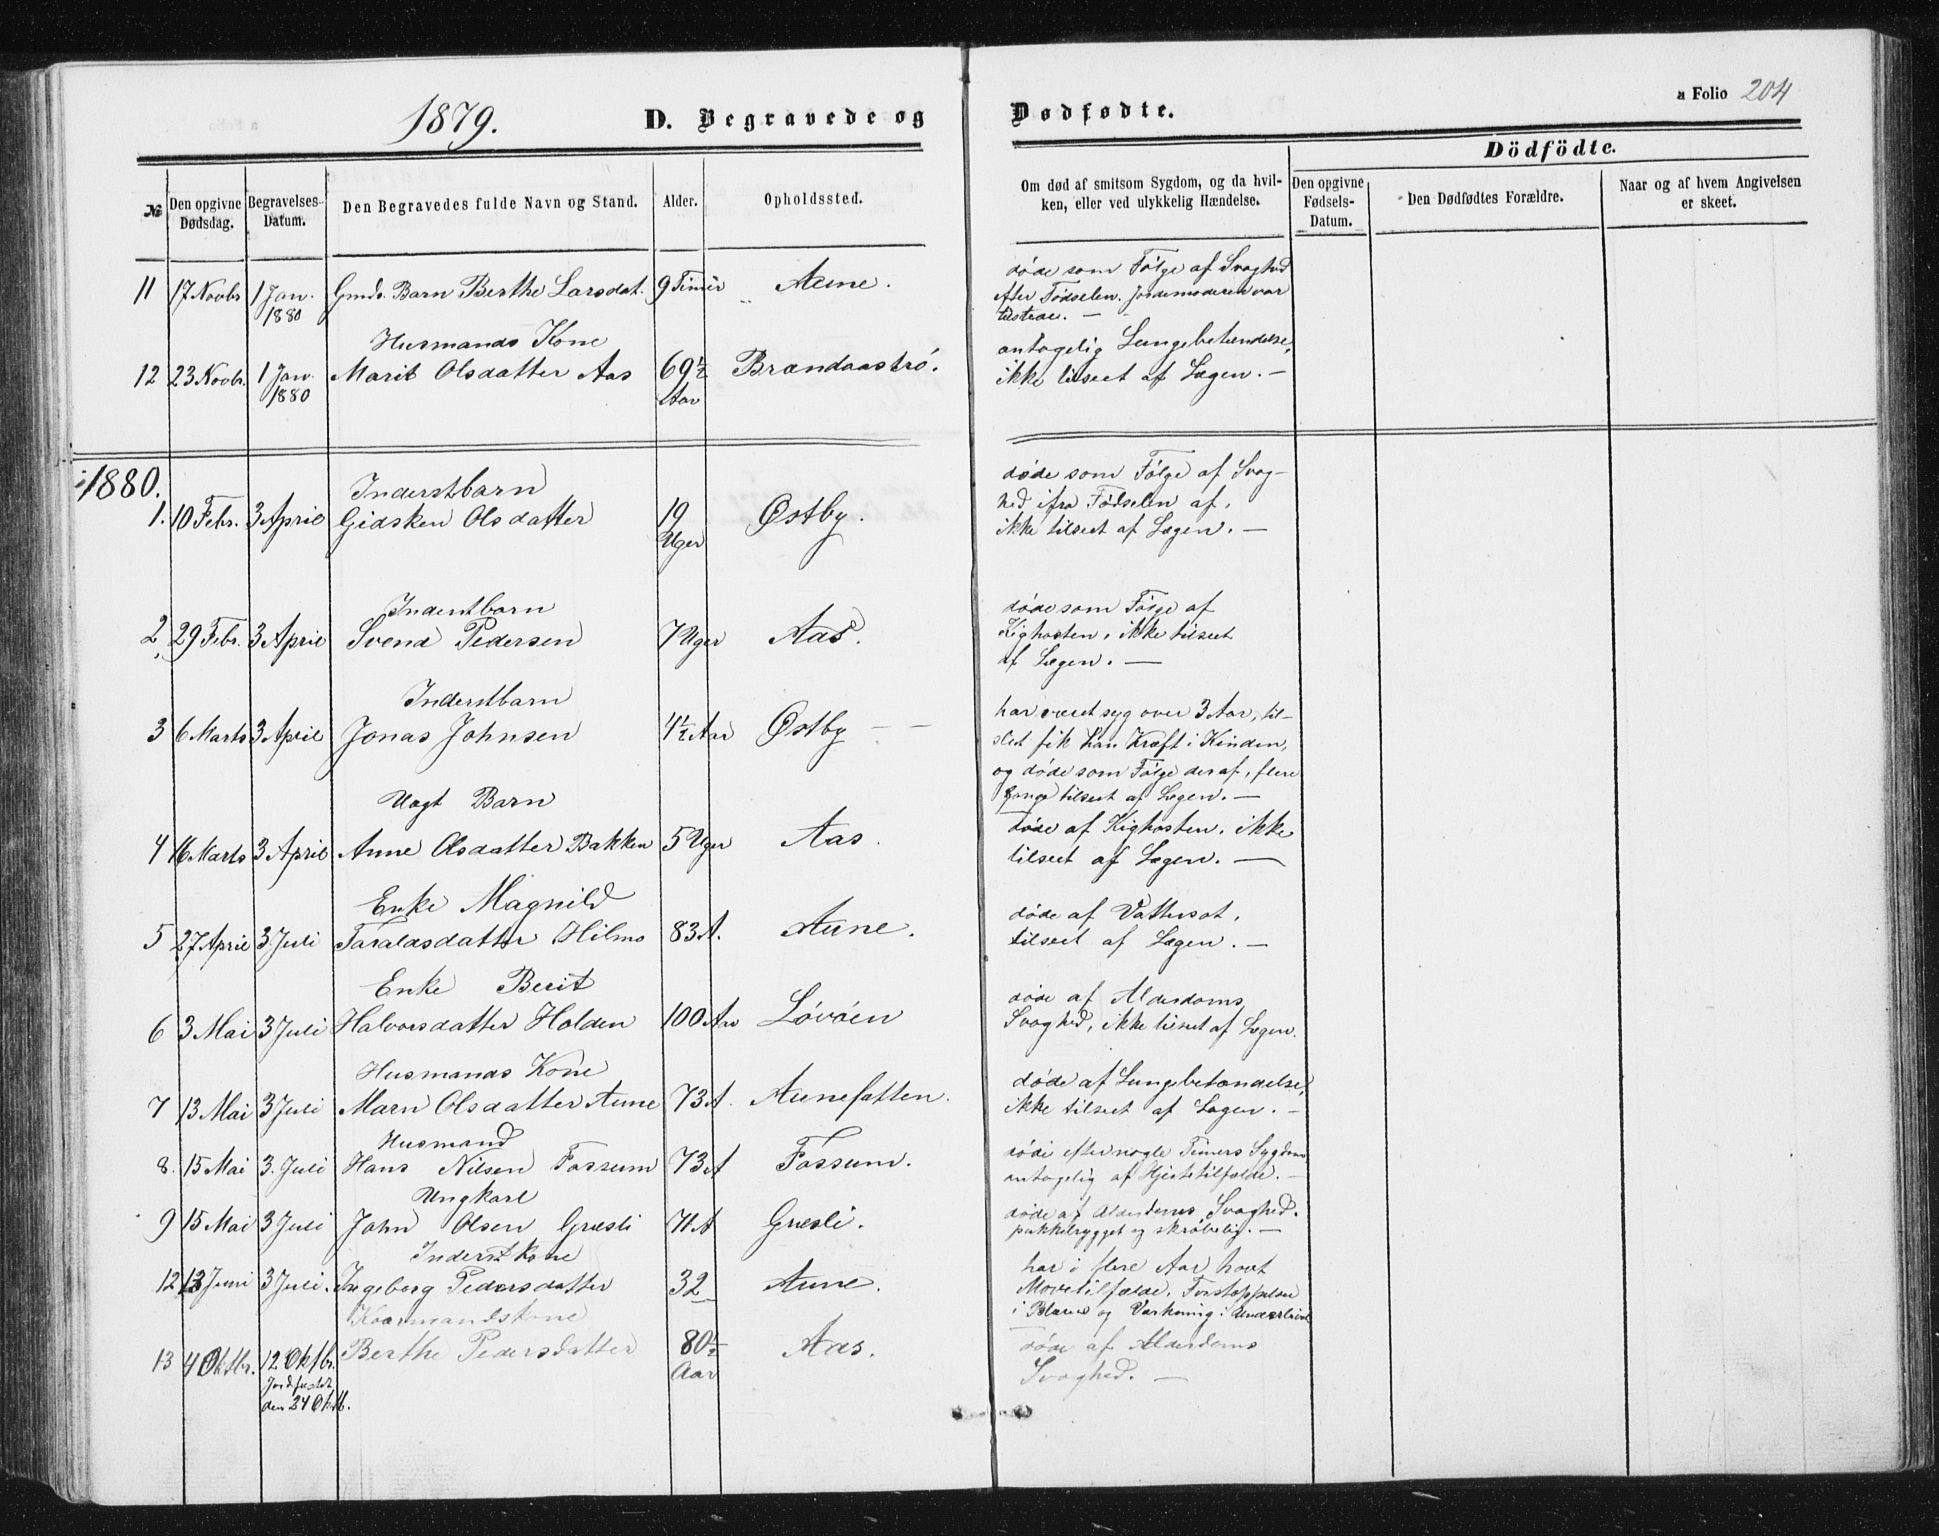 1879.
D. Begravede og Dødfødte.
a Folio 204
Dödfödte.
№
Den opgivne Dødsdag.
Begravelses-Datum.
Den Begravedes fulde Navn og Stand.
Alder.
Opholdssted.
Om død af smitsom Sygdom, og da hvil-
ken, eller ved ulykkelig Hændelse.
Den opgivne Fødsels-Datum.
Den Dødfødtes Forældre.
Naar og af hvem Angivelsen er skeet.
11 17 Novbr 1 Jan. 1880 Gmds. Barn Berthe Larsdat. 9 Timer Aune.
døde som Følge af Svaghed
efter Fødselen. Jordemoderen var
tilstede. —
Husmands Kone
12 23 Novbr. 1 Jan. 1880 Marit Olsdatter Aas 69½ Aar Brændaastrø.
antagelig Lungebetændelse,
ikke tilseet af Lægen. —
1880.
Inderstbarn
1. 10 Febr. 3 April Gidsken Olsdatter 19 Uger Østby.
døde som Følge af Svag-
hed ifra Fødselen af,
ikke tilseet af Lægen. —
Inderstbarn
2, 29 Febr. 3 April Svend Pedersen 7 Uger Aas.
døde som Følge af
Kighosten, ikke tilseet
af Lægen. —
Inderstbarn
3 6 Marts 3 April Jonas Johnsen 4½ Aar Østby — —
har været syg over 3 Aar, til-
slut fik han Kræft i Kinden,
og døde som Følge deraf, flere
Gange tilseet af Lægen. —
Uægt Barn
4 16 Marts 3 April Anne Olsdatter Bakken 5 Uger Aas.
døde af Kighosten. ikke
tilseet af Lægen. —
Enke Magnild
5 27 April 3 Juli Taralasdatter Hilmo 83 A. Aune.
døde af Vattersot,
tilseet af Lægen. —
Enke Berit
6 3 Mai 3 Juli Halvorsdatter Holden 100 Aar Løvøen
døde af Alderdoms
Svaghed, ikke tilseet af Lægen.
Husmands Kone
7 13 Mai 3 Juli Marn Olsdatter Aune 73 A. Aunefatten.
døde af Lungebetændelse,
ikke tilseet af Lægen. —
Husmand
8. 15 Mai 3. Juli Hans Nilsen Fossum 73 A Fossum.
døde efter nogle Timers Sygdom
antagelig af Hjertetilfælde. —
Ungkarl
9 15 Mai 3 Juli John Olsen Græsli 71 A Græsli.
døde af Alderdoms Svaghed.
pukkelrygget og skrøbelig. —
Inderst kone
12 13 Juni 3 Juli. Ingeborg Pedersdatter 32 Aune.
har i flere Aar havt
Mavetilfælde, Forstoppelse
i Blæren og Værkning i Underlivet
Kaarmandskone
13 4 Oktbr. 12 Oktbr. Berthe Pedersdatter 80½ Aar Aas.
Jordfæstet
den 24 Oktb.
døde af Alderdoms
Svaghed. —